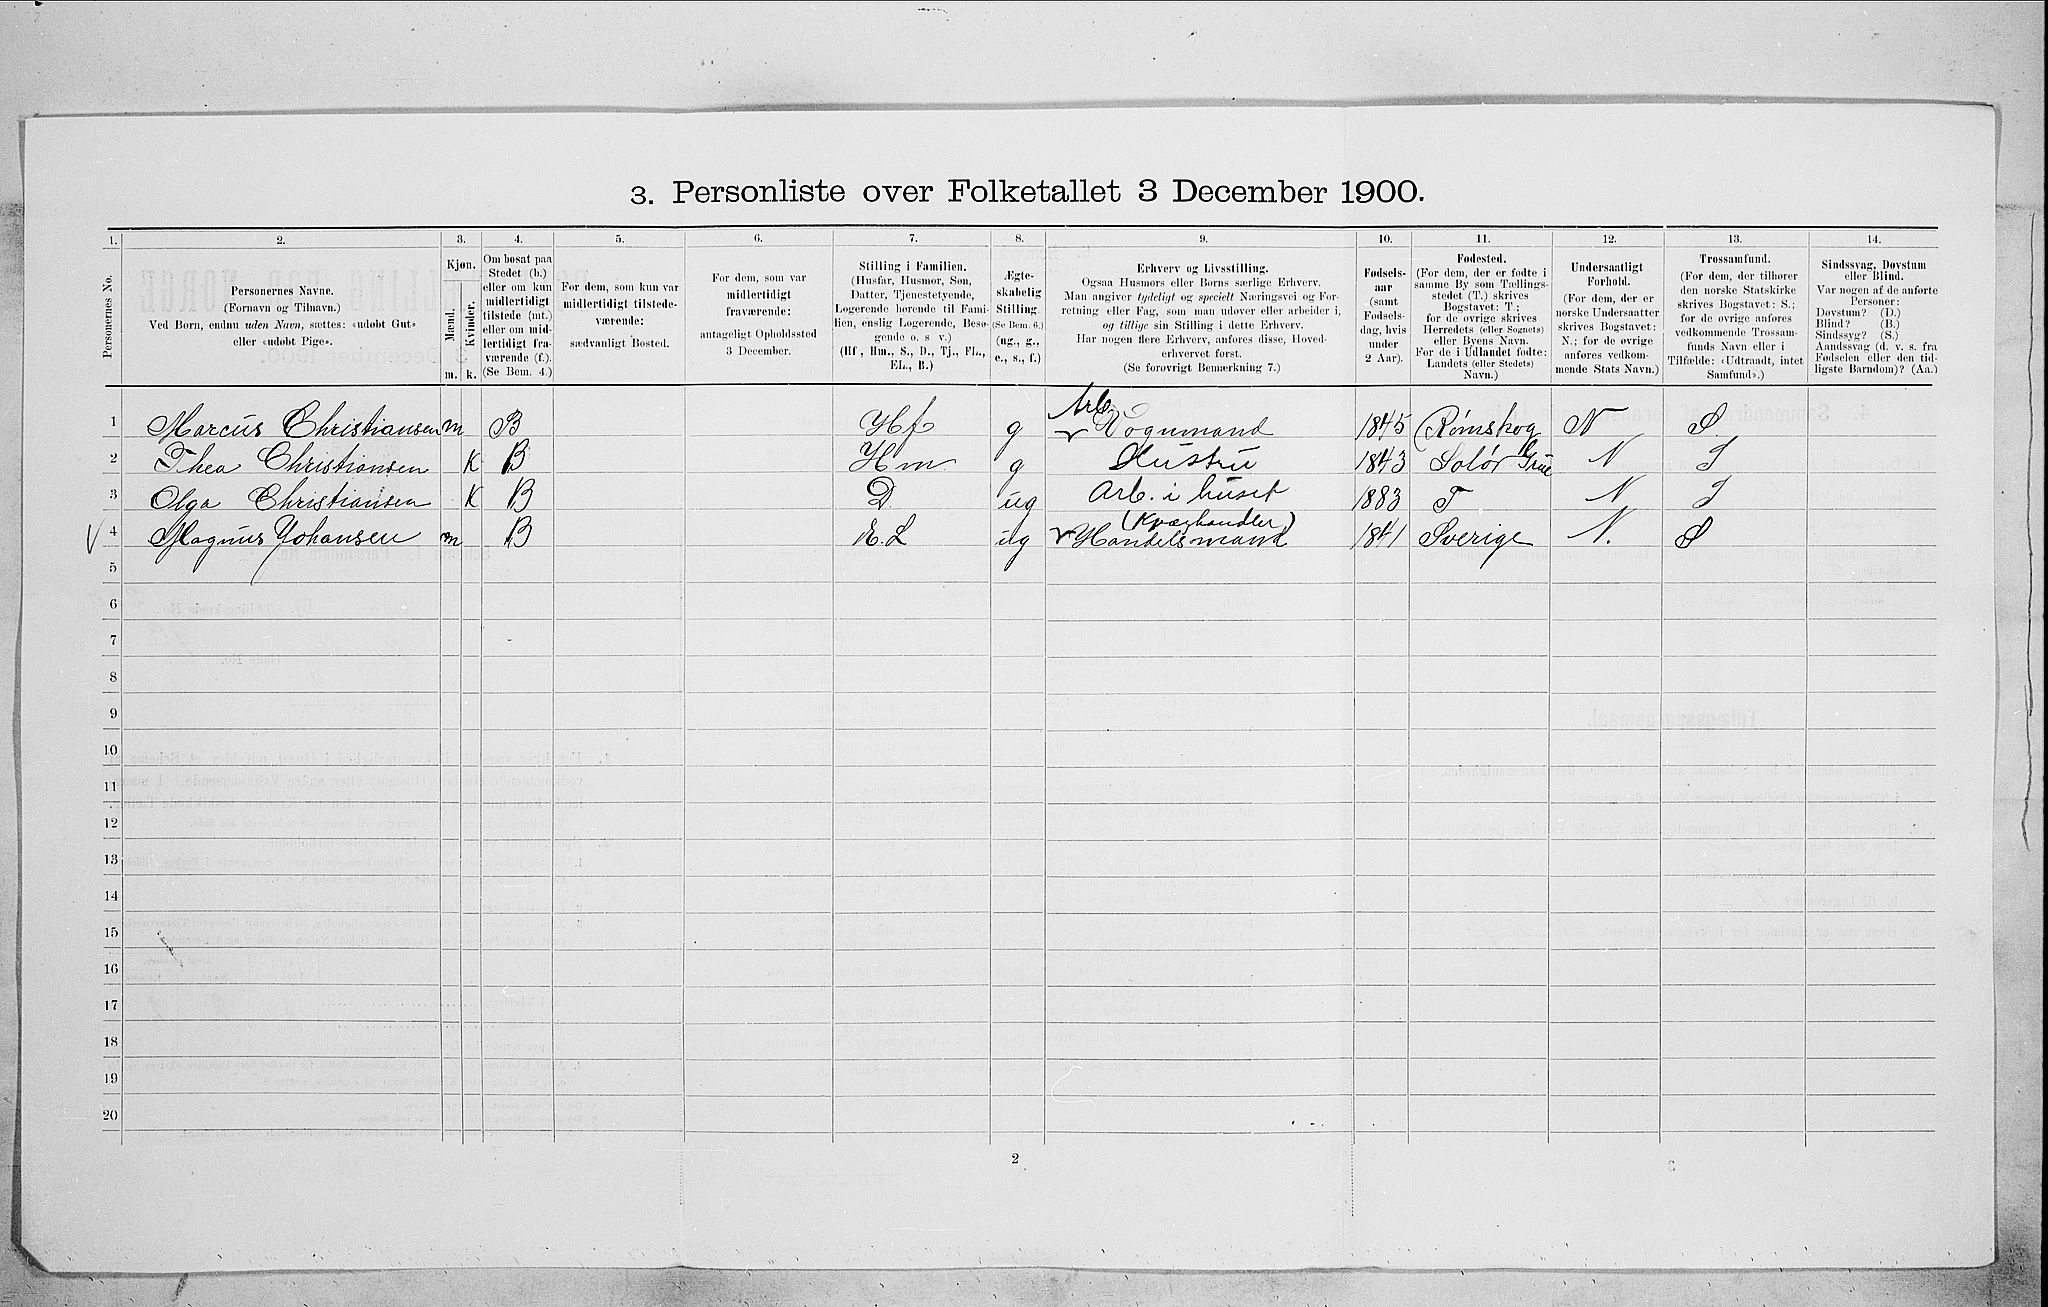 3. Personliste over Folketallet 3 December 1900.
1. 2. 3. 4. 5. 6. 7. 8. 9. 10. 11. 12. 13. 14.
Personernes No.
Personernes Navne.
(Fornavn og Tilnavn.)
Ved Børn, endnu uden Navn, sættes: «udøbt Gut»
eller «udøbt Pige».
Kjøn.
Mænd.
Kvinder.
m. k.
Om bosat paa
Stedet (b.)
eller om kun
midlertidigt
tilstede (mt.)
eller om mid-
lertidigt fra-
værende (f.).
(Se Bem. 4.)
For dem, som kun var
midlertidigt tilstede-
værende:
sædvanligt Bosted.
For dem, som var
midlertidigt
fraværende:
antageligt Opholdssted
3 December.
Stilling i Familien.
(Husfar, Husmor, Søn,
Datter, Tjenestetyende,
Logerende hørende til Fami-
lien, enslig Logerende, Besø-
gende o. s. v.)
(Hf, Hm., S., D., Tj., FL.,
EL., B.)
Ægte-
skabelig
Stilling.
(Se Bem. 6.)
(ug., g.,
e., s., f.)
Erhverv og Livsstilling.
Ogsaa Husmors eller Børns særlige Erhverv.
Man angiver tydeligt og specielt Næringsvei og For-
retning eller Fag, som man udøver eller arbeider i,
og tillige sin Stilling i dette Erhverv.
Har nogen flere Erhverv, anføres disse, Hoved-
erhvervet først.
(Se forøvrigt Bemærkning 7.)
Fødsels-
aar
(samt
Fødsels-
dag, hvis
under
2 Aar).
Fødested.
(For dem, der er fødte i
samme By som Tællings-
stedet (T.) skrives
Bogstavet: T;
for de øvrige skrives
Herredets (eller Sognets)
eller Byens Navn.
For de i Udlandet fødte:
Landets (eller Stedets)
Navn.)
Undersaatligt
Forhold.
(For dem, der er
norske Undersaatter
skrives Bogstavet:
N.; for de øvrige
anføres vedkom-
mende Stats Navn.)
Trossamfund.
(For dem, der tilhører
den norske Statskirke
skrives Bogstavet: S.;
for de øvrige anføres
vedkommende Trossam-
funds Navn eller i
Tilfælde: «Udtraadt, intet
Samfund».)
Sindssvag, Døvstum
eller Blind.
Var nogen af de anførte
Personer:
Døvstum? (D.)
Blind? (B.)
Sindssyg? (S.)
Aandssvag (d. v. s. fra
Fødselen eller den tid-
ligste Barndom)? (Aa.)
Arb.
1 Marcus Christiansen m B Hf g Vognmand 1845 Rømskog N S
2 Thea Christiansen K B Hm g Hustru 1843 Solør Grue N S
3 Olga Christiansen K B D. ug Arb. i huset 1883 T N S
(Kvæghandler)
4 Magnus Johansen m B E. L ug Handelsmand 1841 Sverige N. S
5
6
7
8
9
10
11
12
13
14
15
16
17
18
19
20
2